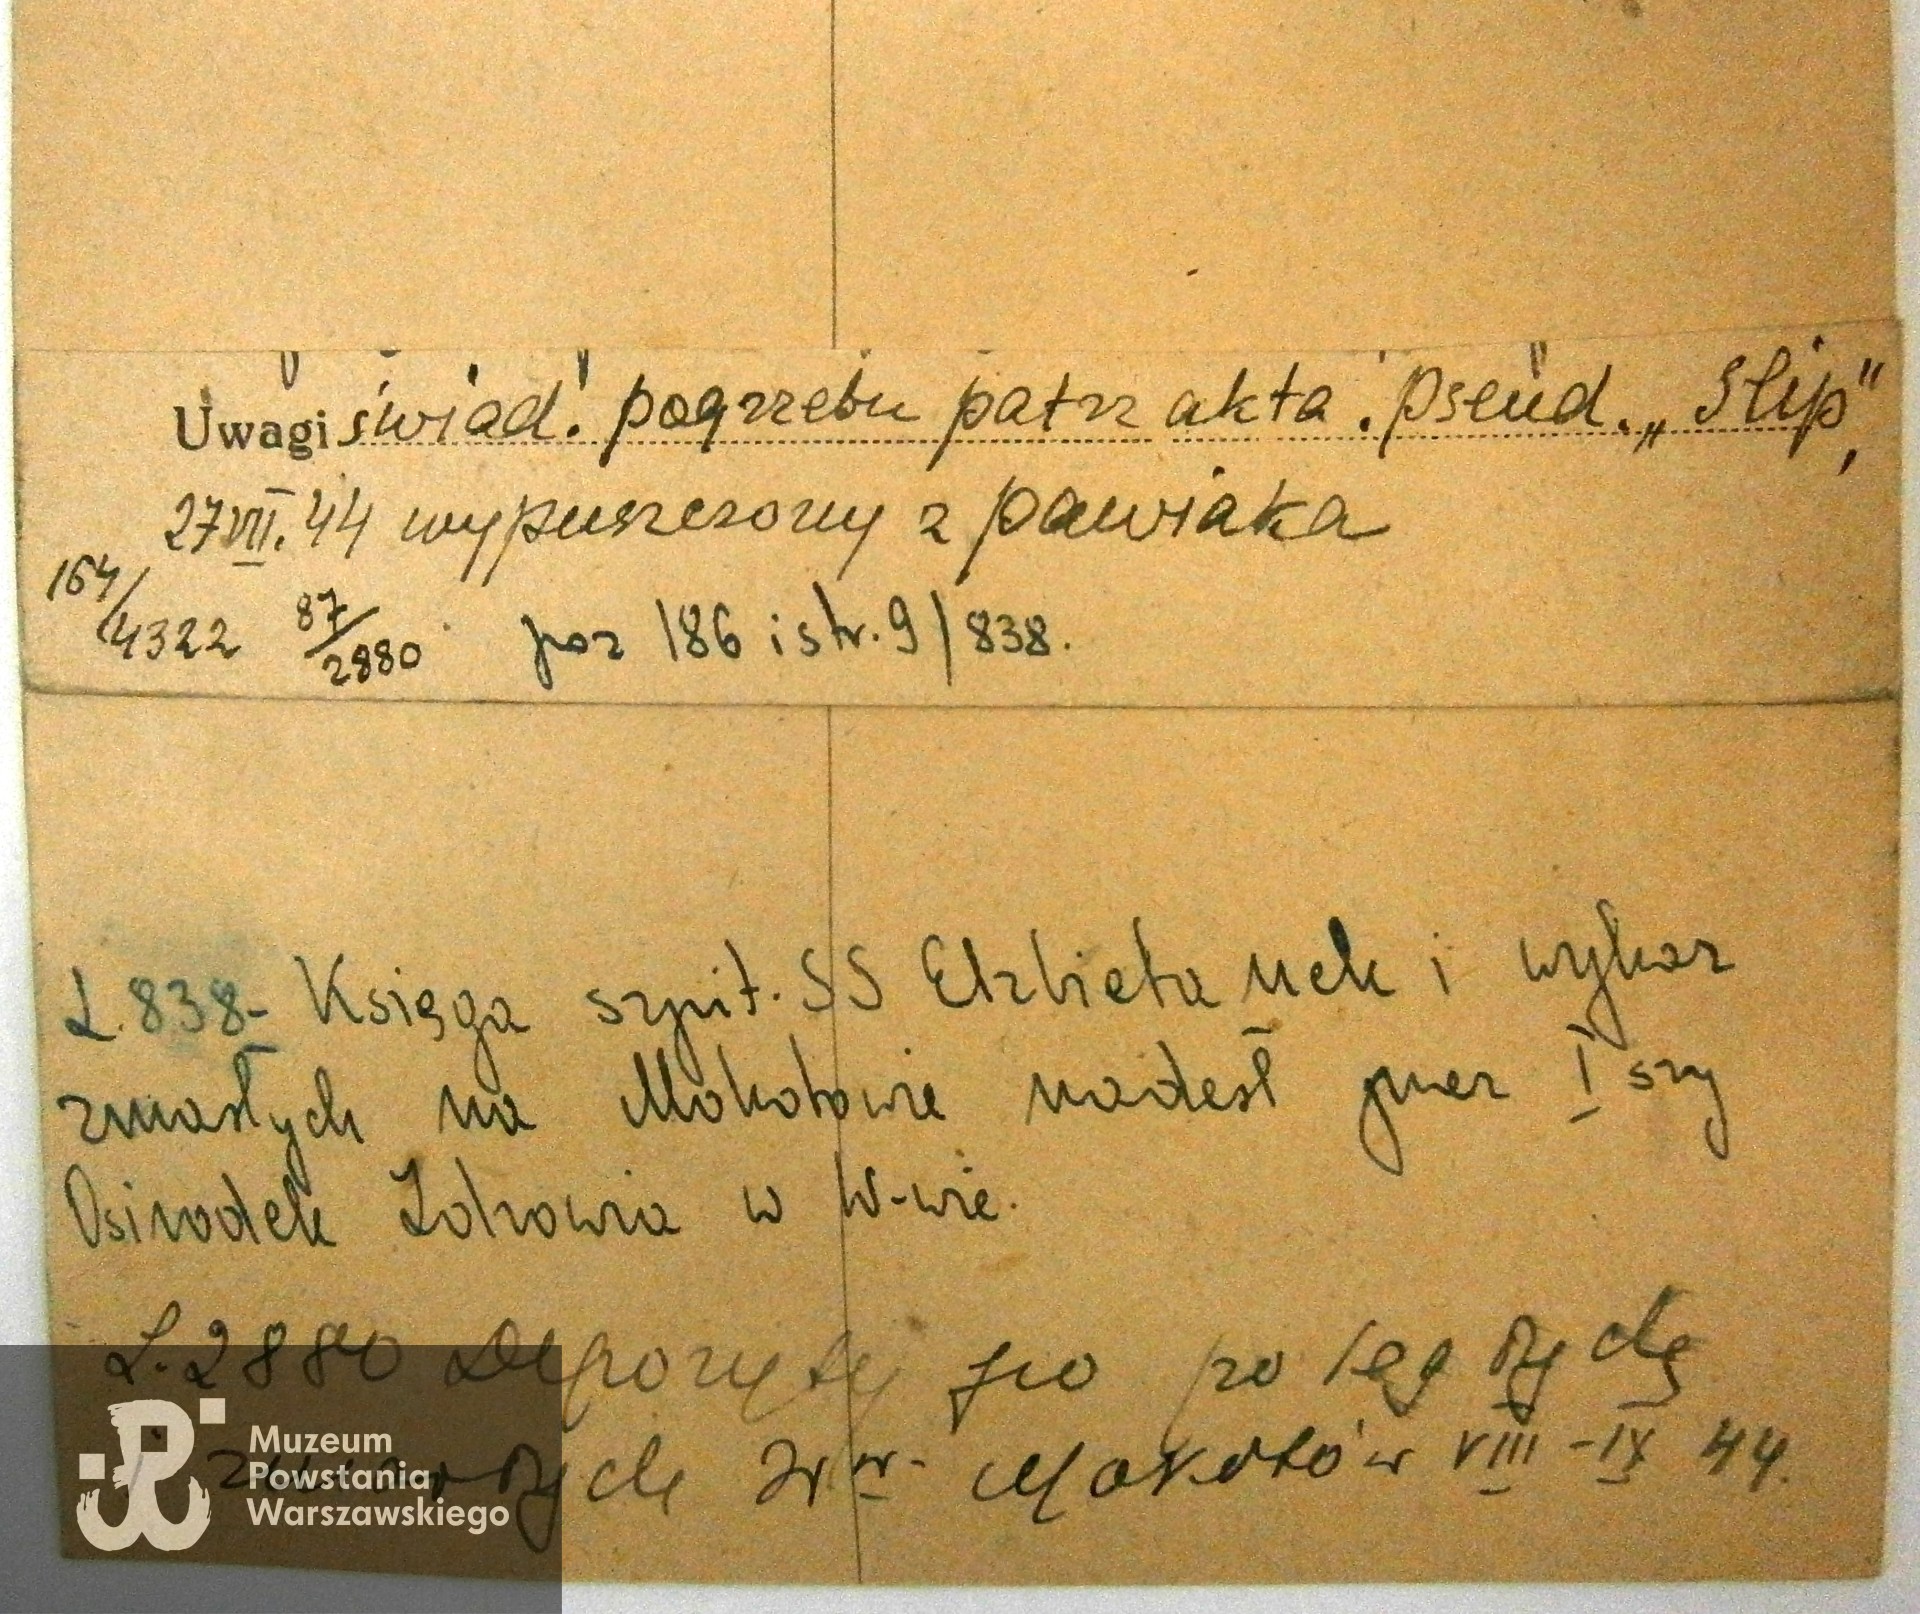 Uwagi świad. pogrzebu patrz akta. pseud. „Slip",
27 VII. 44 wypuszczony z pawiaka
164/4322 87/2880 poz 186 i str. 9/838.
L. 838- Księga szpit. SS Elżbietanek i wykaz
zmarłych na Mokotowie nadesł przez I szy
Ośrodek Zdrowia w W-wie.
L. 2880 Depozyty po poległych
i zmarłych Mokotów VIII-IX 44.
Muzeum
Powstania
Warszawskiego